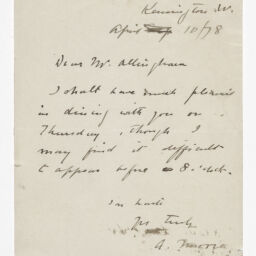 Kensington W.
April 10/78
Dear Mr. Allingham
I shall have much pleasure
in dining with you on
Thursday, though I
may find it difficult
to appear before 8. o'clock.
In haste
Yrs truly
A.